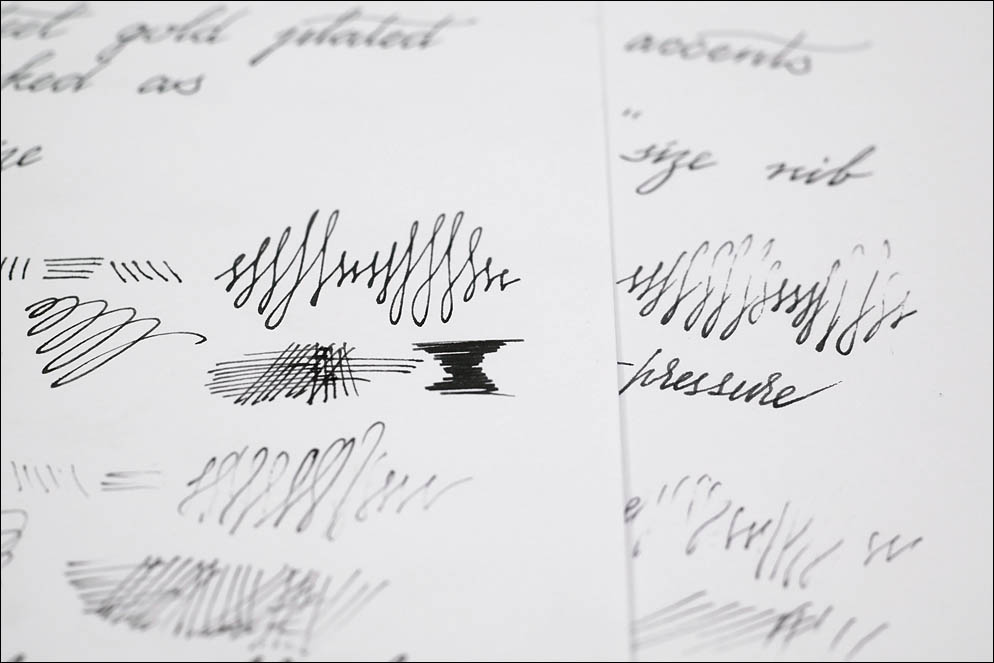 gold plated
ked as
accents
"size nib
pressure